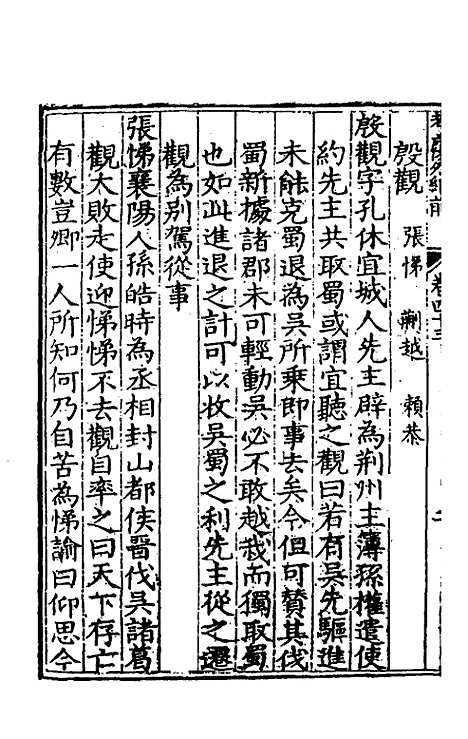 卷四十三
殷觀　張悌　蒯越　賴恭
殷觀字孔休宜城人先主辟為荆州主簿孫權遣使
約先主共取蜀或謂宜聽之觀曰若有吳先驅進
未能克蜀退為吳所乗即事去矣今但可賛其伐
蜀新據諸郡未可輕動吳必不敢越我而獨取蜀
也如此進退之計可以收吳蜀之利先主從之遷
觀為别駕從事
張悌襄陽人孫皓時為丞相封山都侯晉伐吳諸葛
觀大敗走使迎悌悌不去觀自率之曰天下存亡
有數豈卿一人所知何乃自苦為悌諭曰仰思今